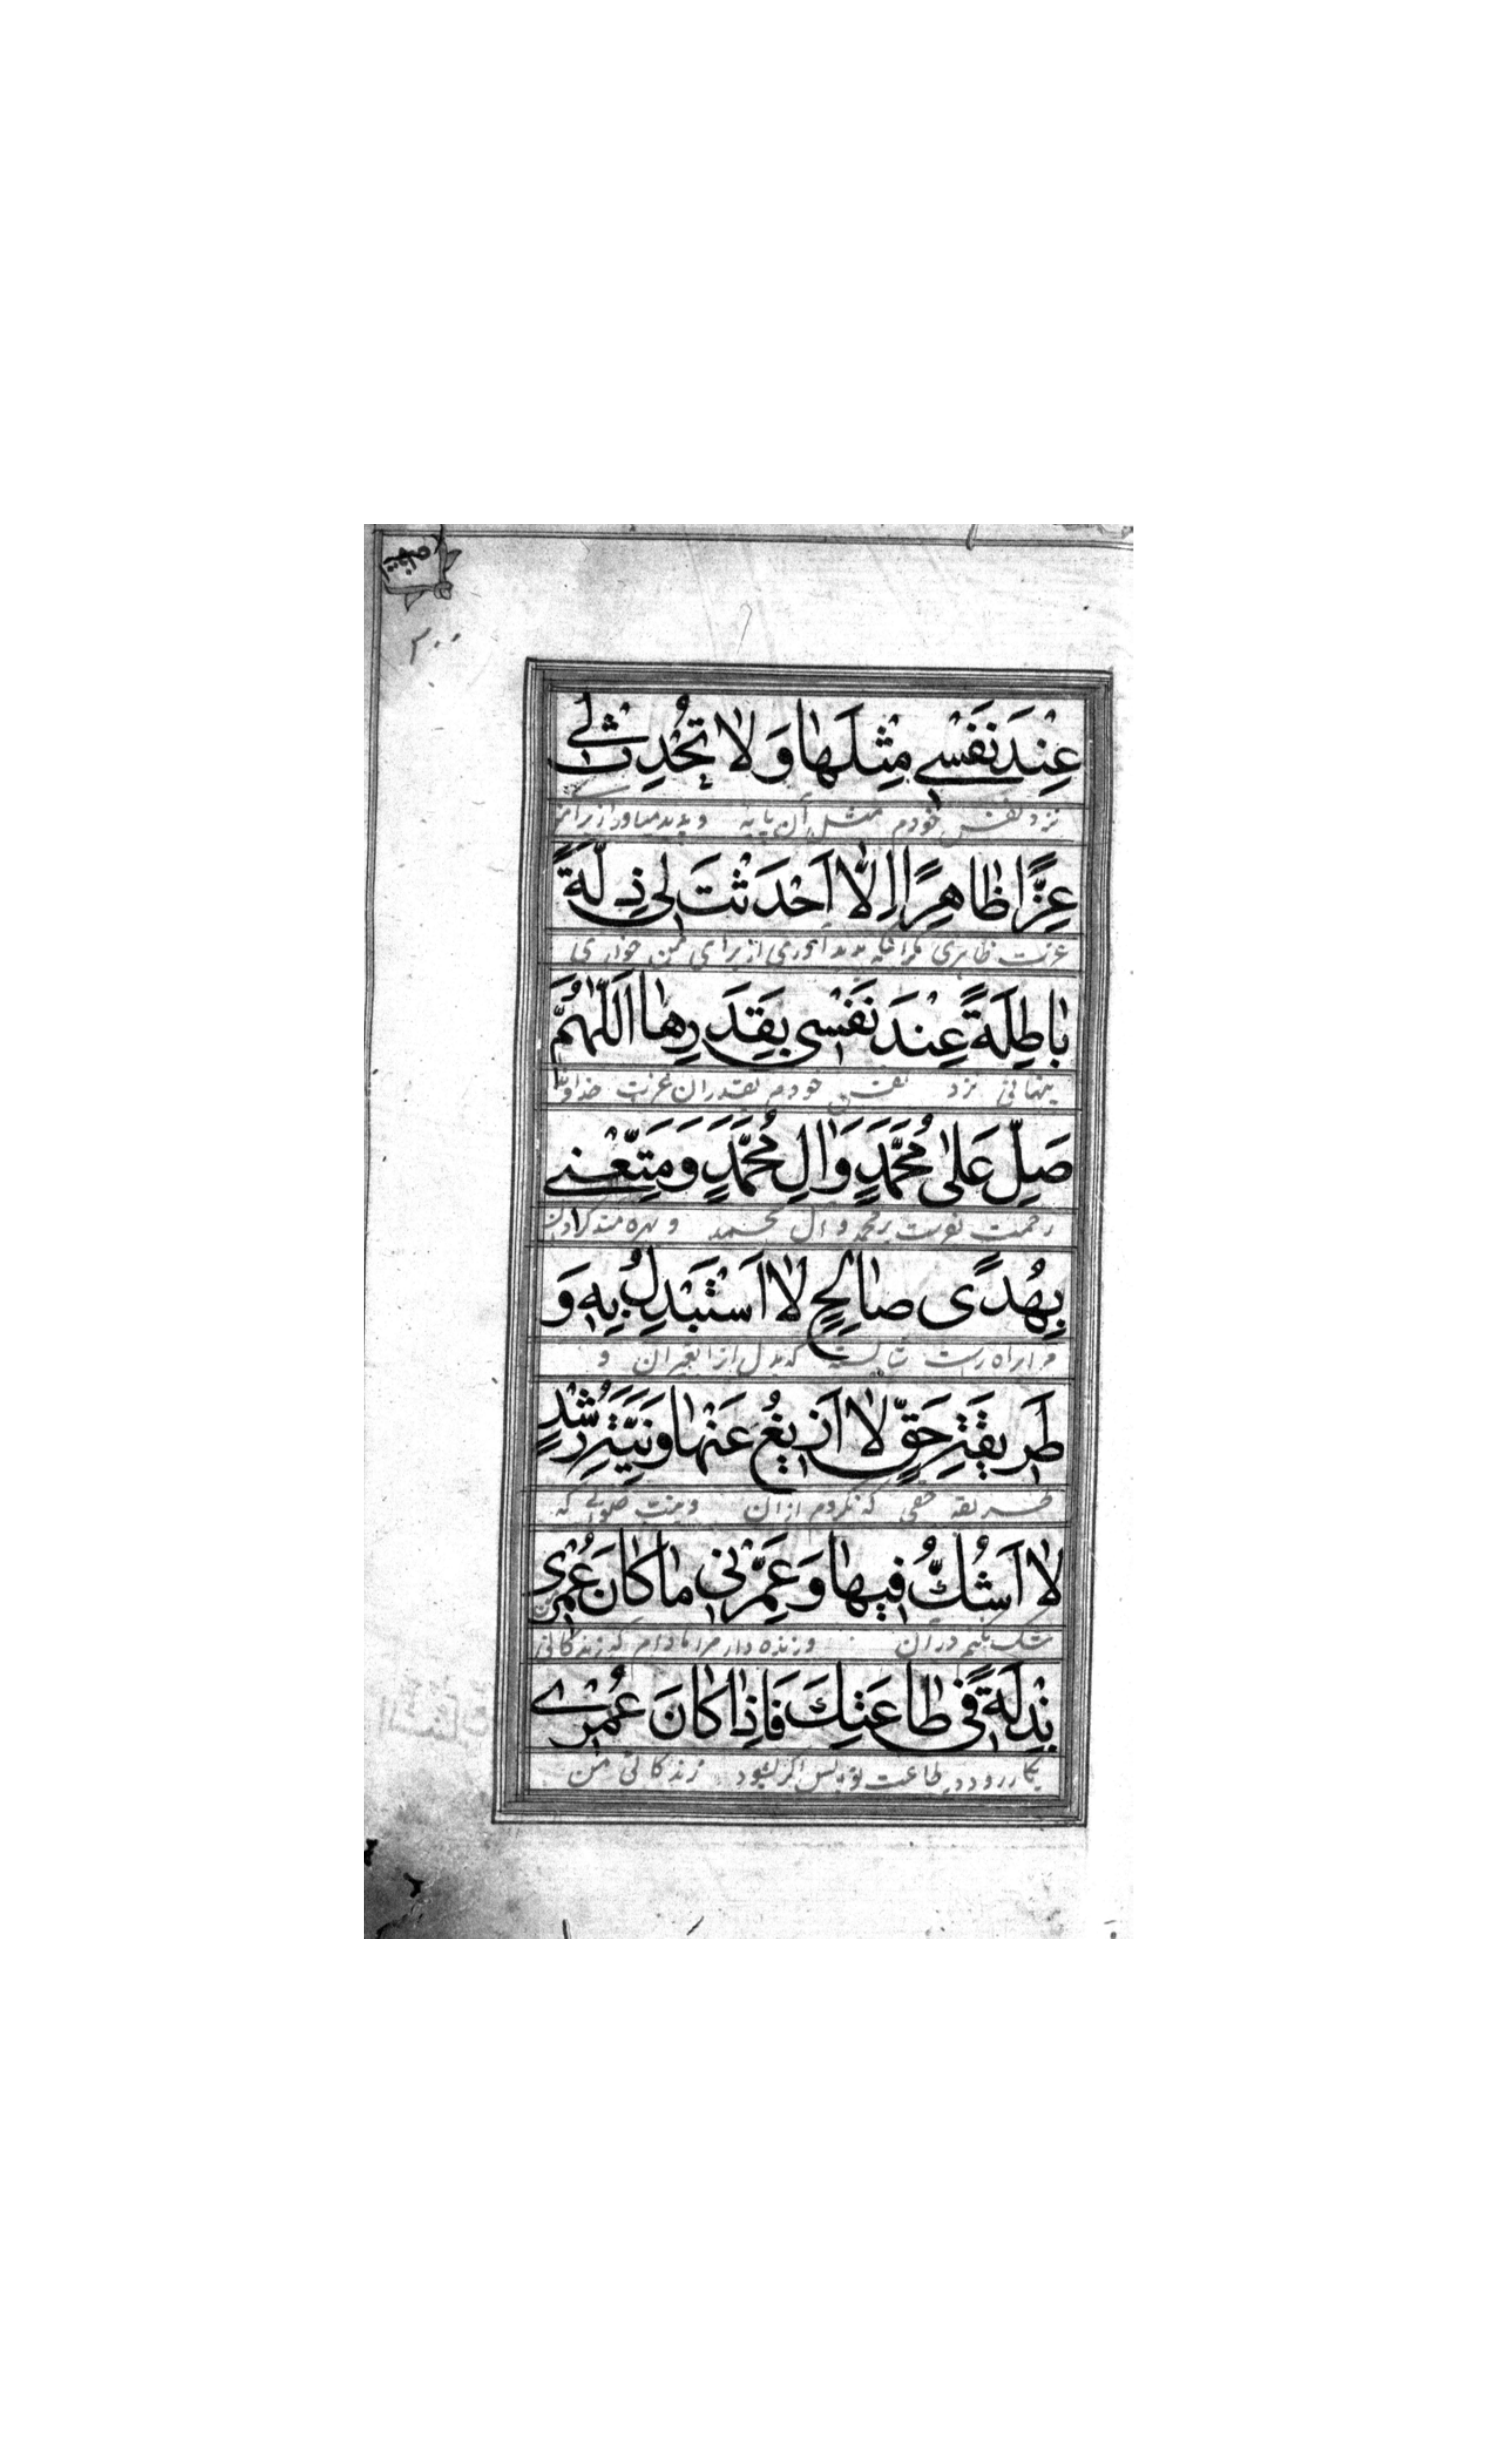 صحیفه
۲۰۰
عِنْدَ نَفْسِي مِثْلَهٰا وَلاٰ تُحْدِثْ لِي
نزد نفس خودم مثل آن پایه و پدید میاور از برای من
عِزًّا ظٰاهِرًا اِلاّٰ اَحْدَثْتَ لِي ذِلَّةً
عزت ظاهری مگر آنکه پدید آوری از برای من خواری
بٰاطِنَةً عِنْدَ نَفْسِي بِقَدَرِهٰا اَللّٰهُمَّ
پنهانی نزد نفس خودم بقدر آن عزت خداوندا
صَلِّ عَلٰى مُحَمَّدٍ وَاٰلِ مُحَمَّدٍ وَمَتِّعْنِي
رحمت بفرست بر محمد و آل محمد و بهره مند گردان
بِهُدًى صٰالِحٍ لاٰ اَسْتَبْدِلُ بِهِ وَ
مرا براه راست شایسته که بدل از آن نگیرم و
طَرِيقَةِ حَقٍّ لاٰ اَزِيغُ عَنْهٰا وَنِيَّةِ رُشْدٍ
طریقه حقی که نگردم از آن و نیت صوابی که
لاٰ اَشُكُّ فِيهٰا وَعَمِّرْنِي مٰا كٰانَ عُمْرِي
شک نکنم در آن و زنده دار مرا مادام که زندگانی من
بِذْلَةً فِي طٰاعَتِكَ فَاِذٰا كٰانَ عُمْرِي
بکار رود در طاعت تو پس اگر بشود زندگانی من